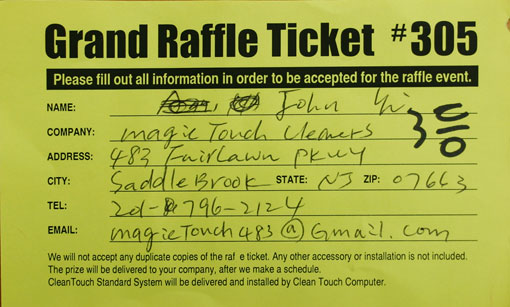 Grand Raffle Ticket #305
Please fill out all information in order to be accepted for the raffle event.
NAME: John Yi
COMPANY: magic Touch Cleaners
ADDRESS: 483 Fairlawn pkwy
CITY: Saddle Brook STATE: NJ ZIP: 07663
TEL: 201-796-2124
EMAIL: magicTouch483@Gmail.com
3등
We will not accept any duplicate copies of the raf e ticket. Any other accessory or installation is not included.
The prize will be delivered to your company, after we make a schedule.
CleanTouch Standard System will be delivered and installed by Clean Touch Computer.